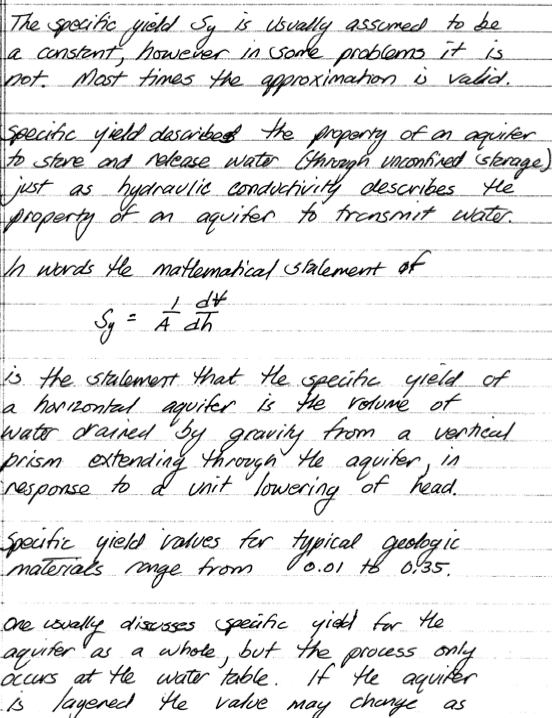 The specific yield Sy is usually assumed to be
a constant, however in some problems it is
not. Most times the approximation is valid.
Specific yield describes the property of an aquifer
to store and release water (through unconfined storage)
just as hydraulic conductivity describes the
property of an aquifer to transmit water.
In words the mathematical statement of
Sy = 1/A dV/dh
is the statement that the specific yield of
a horizontal aquifer is the volume of
water drained by gravity from a vertical
prism extending through the aquifer, in
response to a unit lowering of head.
Specific yield values for typical geologic
materials range from 0.01 to 0.35.
One usually discusses specific yield for the
aquifer as a whole, but the process only
occurs at the water table. If the aquifer
is layered the value may change as